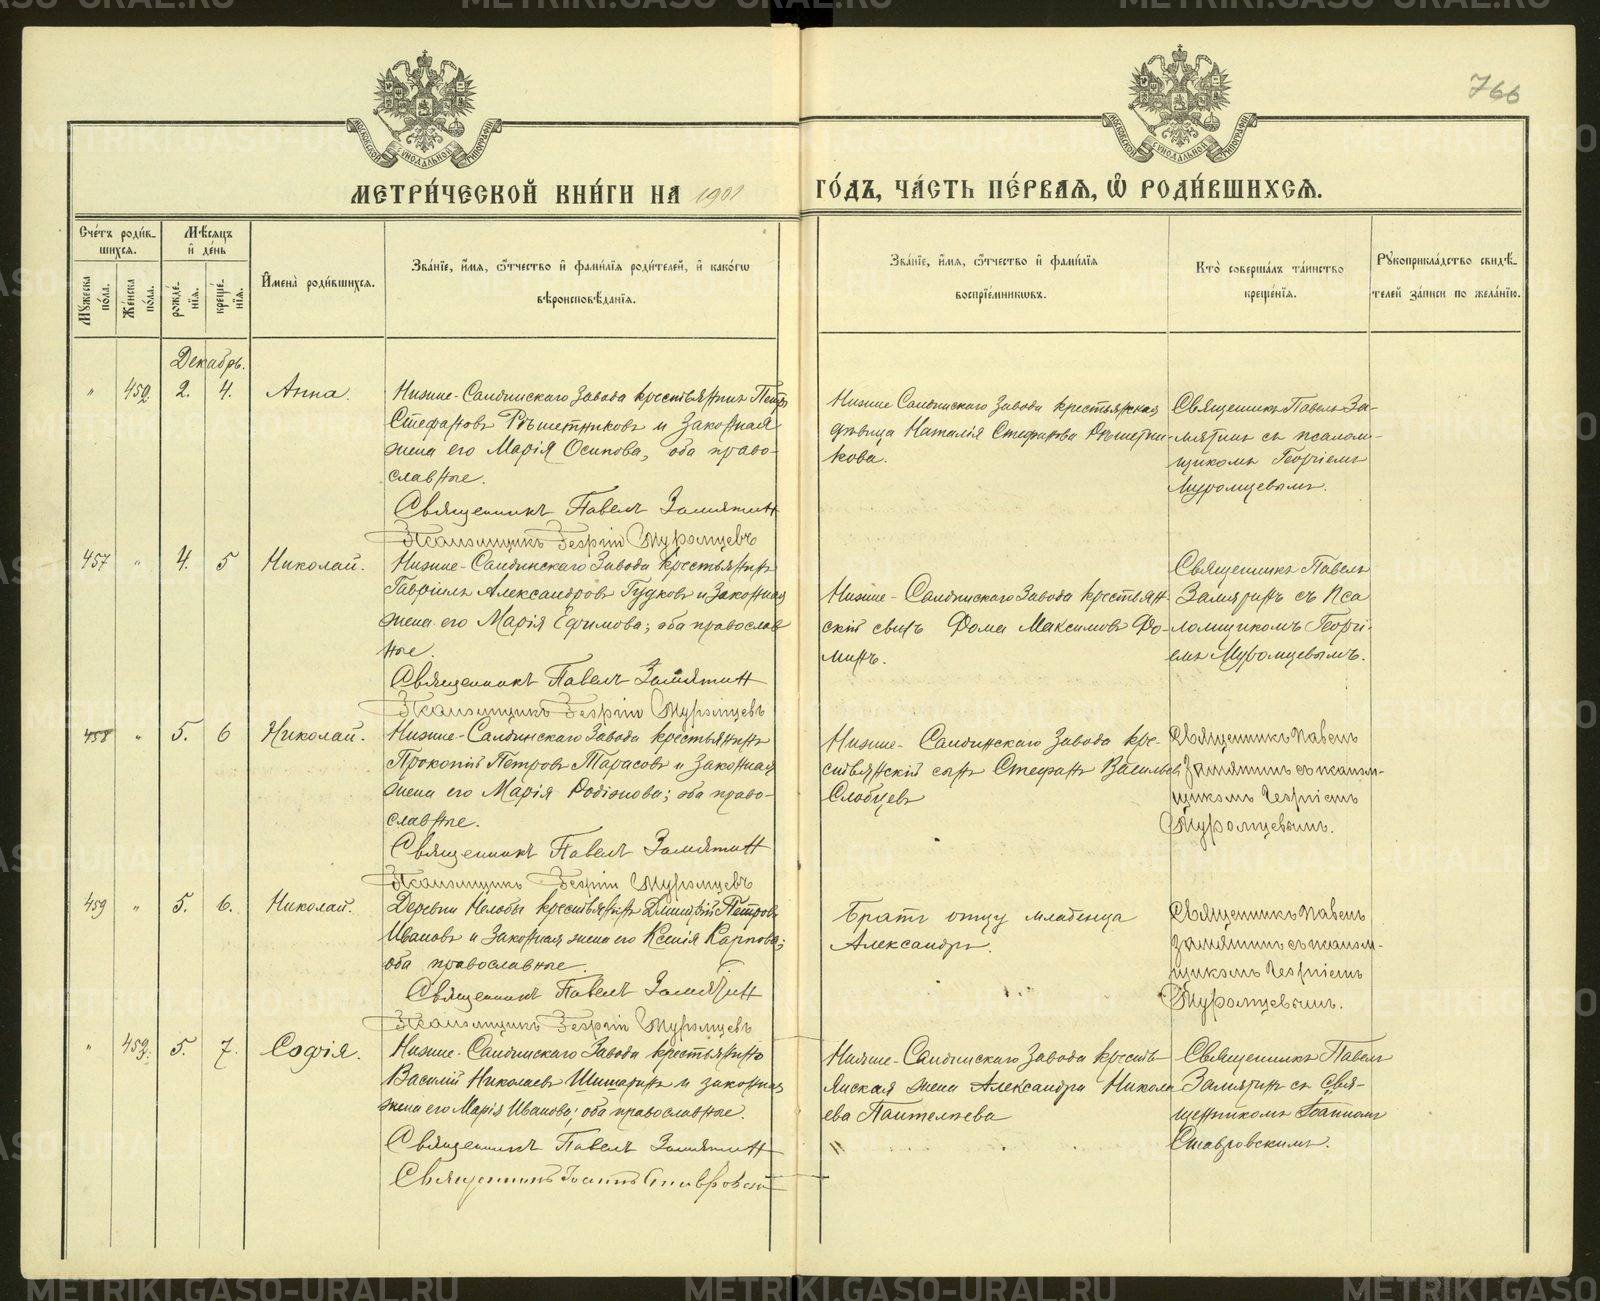 766
МЕТРИ́ЧЕСКОЙ КНИ́ГИ НА 1901 ГО́ДЪ, ЧА́СТЬ ПЕ́РВАѦ, Ѽ РОДИ́ВШИХСѦ.
Сче́тъ роди́в-
шихсѧ.
Му́жеска по́ла.
Же́нска по́ла.
Мѣ́сѧцъ
и҆ де́нь
рожде́нїѧ.
креще́нїѧ.
И҆мена̀ роди́вшихсѧ.
Зва́нїе, и҆́мѧ, ѻ҆́тчество и҆ фами́лїѧ роди́телей, и҆ како́гѡ
вѣроисповѣ́данїѧ.
Зва́нїе, и҆́мѧ, ѻ҆́тчество и҆ фами́лїѧ
воспрїе́мникѡвъ.
Кто̀ соверша́лъ та́инство
креще́нїѧ.
Рꙋкоприкла́дство свидѣ́-
телей за́писи по жела́нїю.
Декабрь.
" 452 2. 4. Анна.
Нижне-Салдинскаго Завода крестьянинъ Петръ
Стефановъ Рѣшетниковъ и Законная
жена его Марія Осипова, оба право-
славные.
Священникъ Павелъ Замятин
Псаломщикъ Георгій Муромцевъ
Нижне Салдинскаго Завода крестьянская
дѣвица Наталія Стефанова Рѣшетни-
кова.
Священникъ Павелъ За-
мятинъ съ псалом-
щикомъ Георгіемъ
Муромцевымъ.
457 " 4. 5 Николай.
Нижне-Салдинскаго Завода крестьянинъ
Гавріилъ Александровъ Гудковъ и Законная
жена его Марія Ефимова; оба православ
ные.
Священникъ Павелъ Замятин
Псаломщикъ Георгій Муромцевъ
Нижне-Салдинскаго Завода крестьян-
скій сынъ Фома Максимовъ Фо-
минъ.
Священникъ Павелъ
Замятинъ съ Пса
ломщикомъ Георгі-
емъ Муромцевымъ.
458 " 5. 6 Николай.
Нижне-Салдинскаго Завода крестьянинъ
Прокопій Петровъ Тарасовъ и Законная
жена его Марія Родіонова; оба право-
славные.
Священникъ Павелъ Замятин
Псаломщикъ Георгій Муромцевъ
Нижне-Салдинскаго Завода кре-
стьянскій сынъ Стефанъ Васильев
Слобцевъ
Священникъ Павелъ
Замятинъ съ псалом-
щикомъ Георгіемъ
Муромцевымъ.
459 " 5. 6. Николай.
Деревни Нелобы крестьянинъ Димитрій Петровъ
Ивановъ и Законная жена его Ксенія Карпова;
оба православные.
Священникъ Павелъ Замятин
Псаломщикъ Георгій Муромцевъ
Братъ отцу младенца
Александръ.
Священникъ Павелъ
Замятинъ съ псалом-
щикомъ Георгіемъ
Муромцевымъ.
" 453. 5. 7. Софія.
Нижне-Салдинскаго Завода крестьянинъ
Василій Николаевъ Шишаринъ и законная
жена его Марія Иванова; оба православные.
Священникъ Павелъ Замятин
Священникъ Іоаннъ Ставровскій
Нижне-Салдинскаго Завода кресть
янская жена Александра Никола
ева Пантелѣева
Священникъ Павелъ
Замятинъ съ Свя-
щенникомъ Іоанномъ
Ставровскимъ.
METRIKI.GASO-URAL.RU